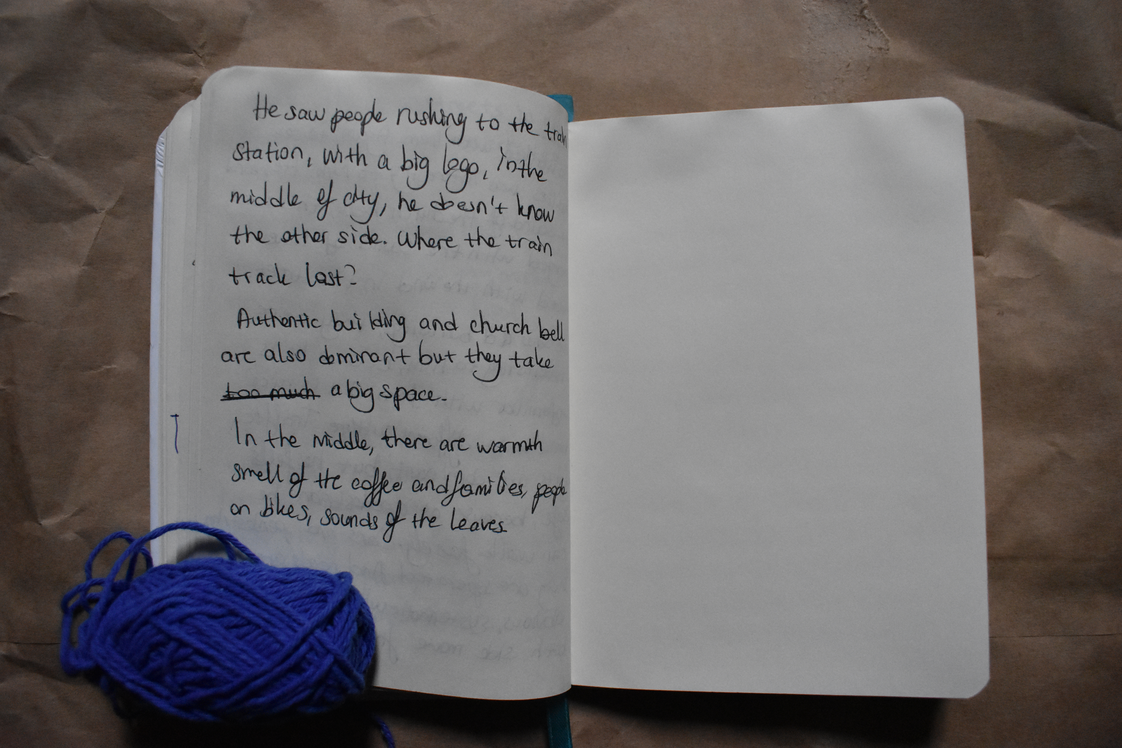 He saw people rushing to the train
station, with a big logo, in the
middle of city, he doesn't know
the other side. Where the train
track last?
Authentic building and church bell
are also dominant but they take
too much a big space.
In the middle, there are warmth
smell of the coffee and families, people
on bikes, sounds of the leaves